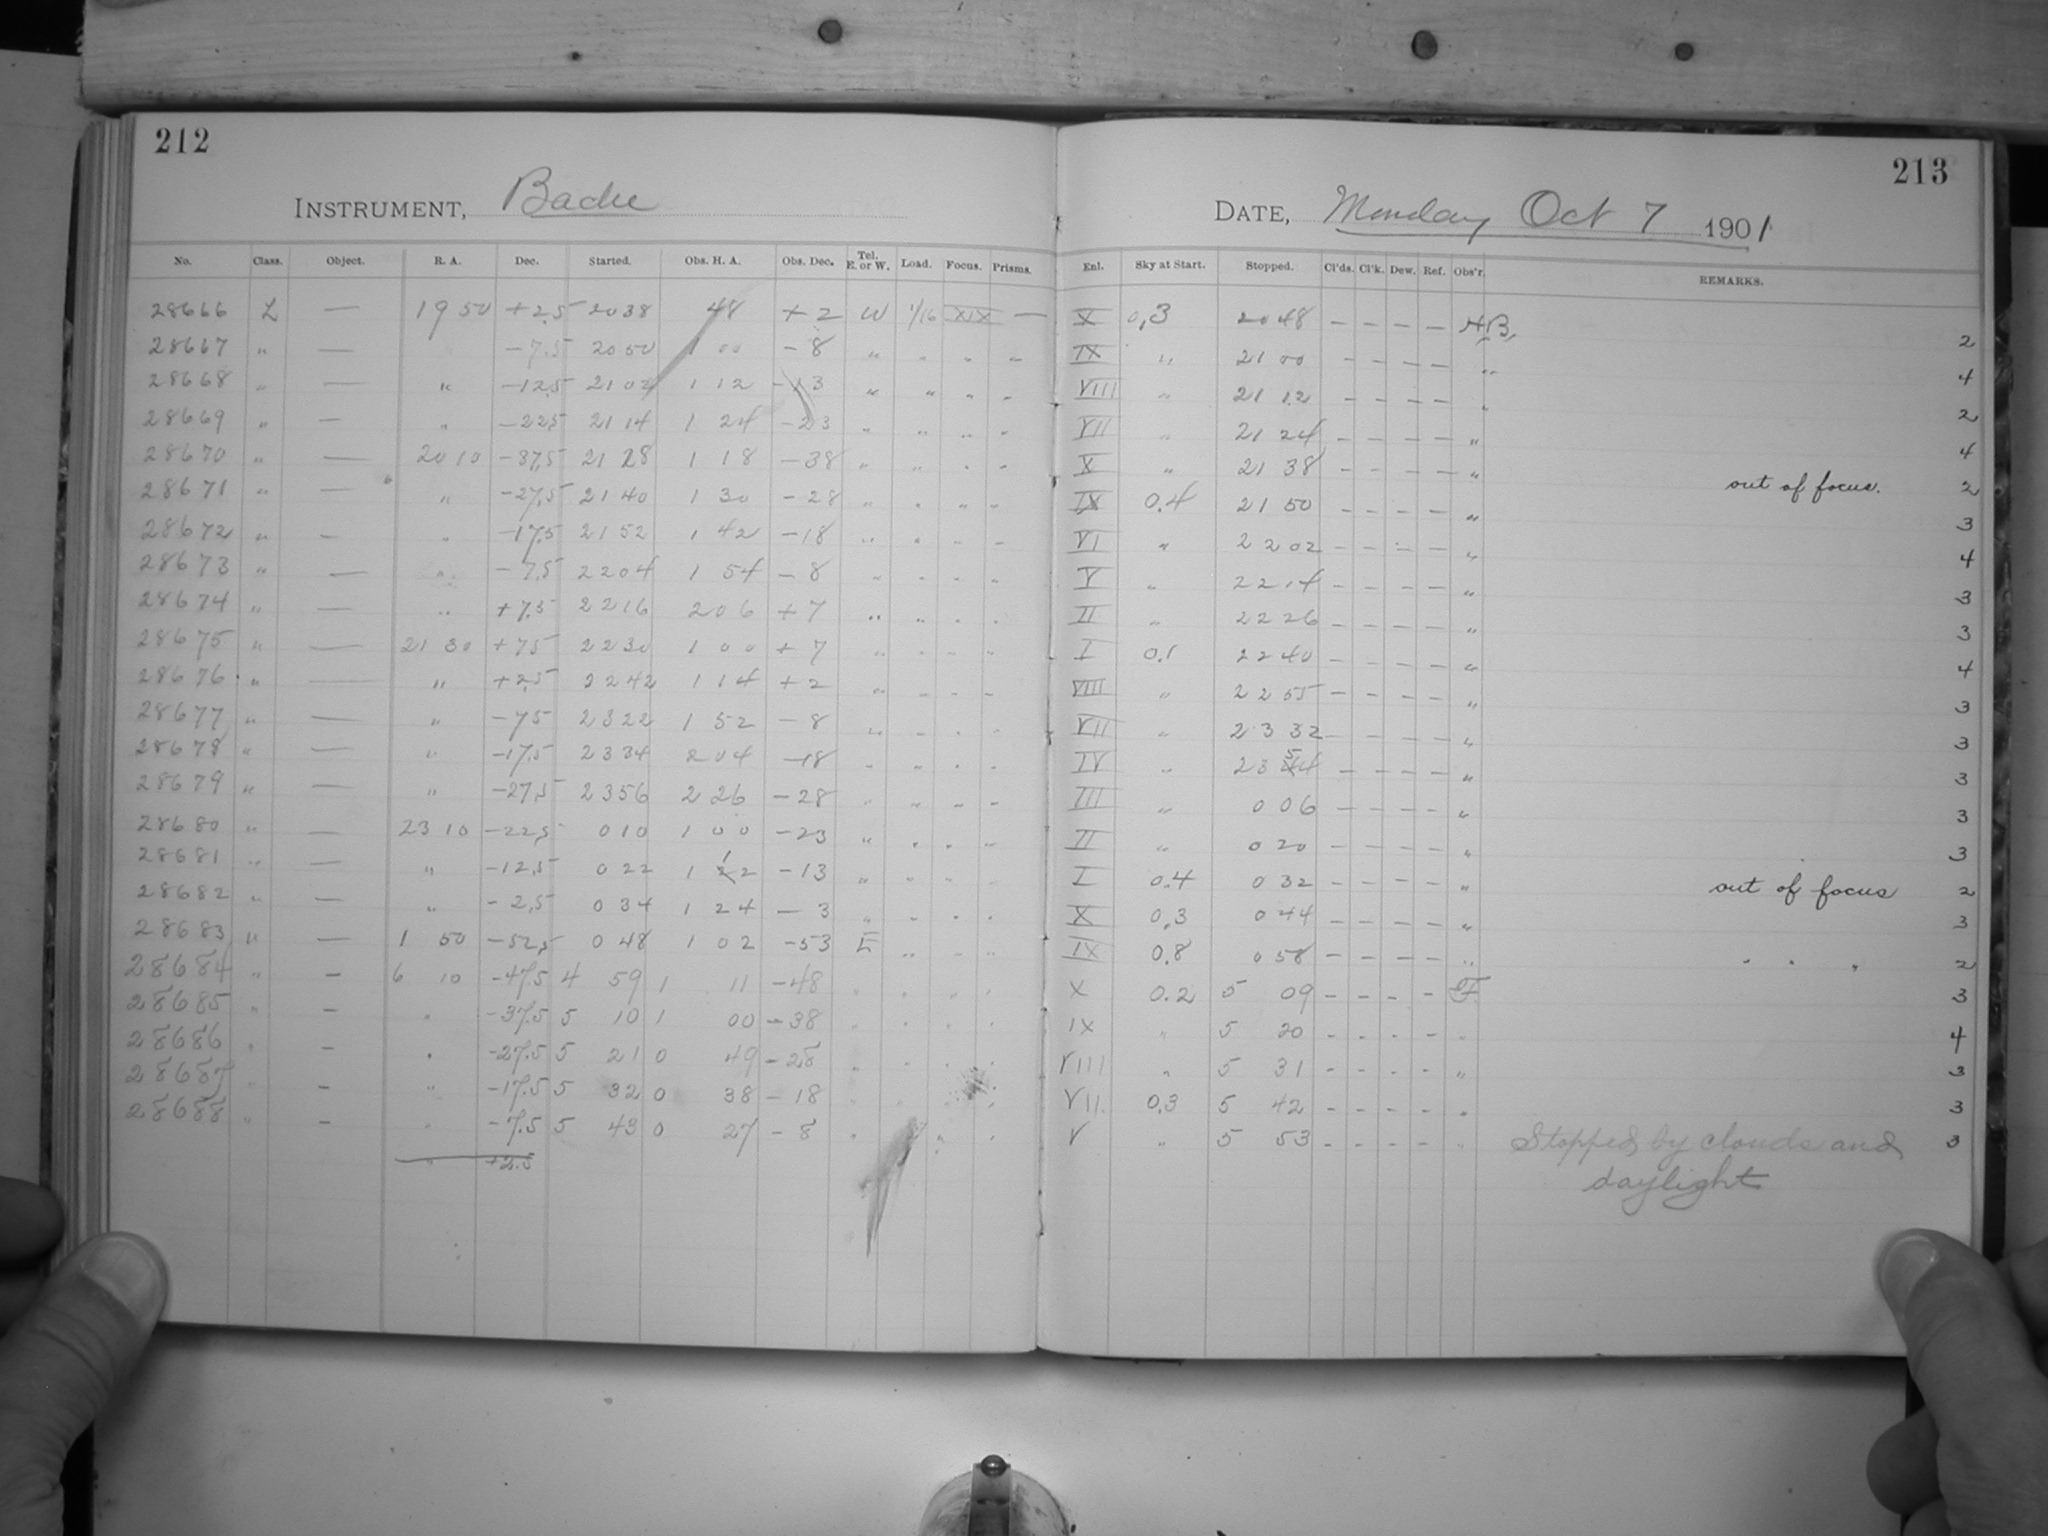 212
INSTRUMENT, Bache
No. Class. Object. R. A. Dec. Started. Obs. H. A. Obs. Dec. Tel. E. or W. Load. Focus. Prisms.
28666 L — 19 50 +2.5 20 38 48 +2 W 1/16 XIX —
28667 " — -7.5 20 50 1 00 -8 " " " "
28668 " — " -12.5 21 02 1 12 -13 " " " "
28669 " — " -22.5 21 14 1 24 -23 " " " "
28670 " — 20 10 -37.5 21 28 1 18 -38 " " " "
28671 " — " -27.5 21 40 1 30 -28 " " " "
28672 " — " -17.5 21 52 1 42 -18 " " " "
28673 " — " -7.5 22 04 1 54 -8 " " " "
28674 " — " +7.5 22 16 2 06 +7 " " " "
28675 " — 21 30 +7.5 22 30 1 00 +7 " " " "
28676 " — " +2.5 22 42 1 14 +2 " " " "
28677 " — " -7.5 23 22 1 52 -8 " " " "
28678 " — " -17.5 23 34 2 04 -18 " " " "
28679 " — " -27.5 23 56 2 26 -28 " " " "
28680 " — 23 10 -22.5 0 10 1 00 -23 " " " "
28681 " — " -12.5 0 22 1 12 -13 " " " "
28682 " — " -2.5 0 34 1 24 -3 " " " "
28683 " — 1 50 -52.5 0 48 1 02 -53 E " " "
28684 " — 6 10 -47.5 4 59 1 11 -48 " " " "
28685 " — " -37.5 5 10 1 00 -38 " " " "
28686 " — " -27.5 5 21 0 49 -28 " " " "
28687 " — " -17.5 5 32 0 38 -18 " " " "
28688 " — " -7.5 5 43 0 27 -8 " " " "
" +2.5
213
DATE, Monday Oct 7 1901
Enl. Sky at Start. Stopped. Cl'ds. Cl'k. Dew. Ref. Obs'r. REMARKS.
X 0.3 20 48 — — — — H.B. 2
IX " 21 00 — — — — " 4
VIII " 21 12 — — — — " 2
VII " 21 24 — — — — " 4
X " 21 38 — — — — " out of focus. 2
IX 0.4 21 50 — — — — " 3
VI " 22 02 — — — — " 4
V " 22 14 — — — — " 3
II " 22 26 — — — — " 3
I 0.1 22 40 — — — — " 4
VIII " 22 55 — — — — " 3
VII " 23 32 — — — — " 3
IV " 23 54 — — — — " 3
III " 0 06 — — — — " 3
II " 0 20 — — — — " 3
I 0.4 0 32 — — — — " out of focus 2
X 0.3 0 44 — — — — " 3
IX 0.8 0 58 — — — — " " " " 2
X 0.2 5 09 — — — — F 3
IX " 5 20 — — — — " 4
VIII " 5 31 — — — — " 3
VII 0.3 5 42 — — — — " 3
V " 5 53 — — — — " Stopped by clouds and 3
daylight